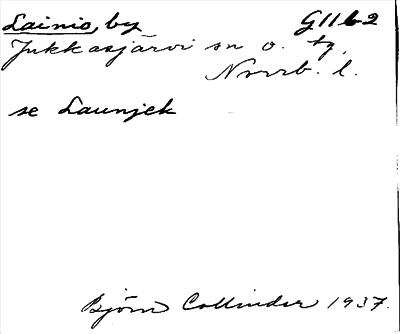 Lainio, by G11b2
Jukkasjärvi sn o. tg,
Norrb. l.
se Launjek
Björn Collinder 1937.